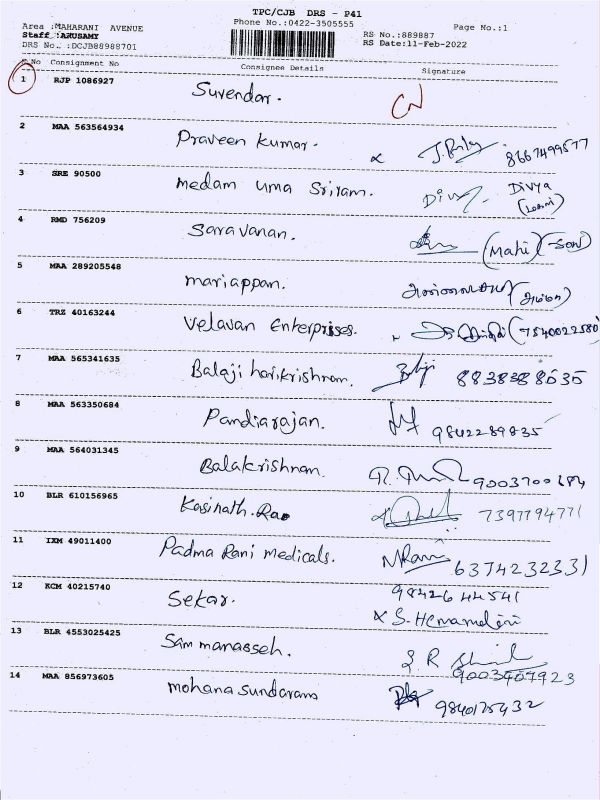 TPC/CJB DRS - P41
Area :MAHARANI AVENUE Phone No.:0422-3505555 Page No.:1
Staff :ARUSAMY RS No.:889887
DRS No. :DCJB88988701 RS Date:11-Feb-2022
S No Consignment No Consignee Details Signature
1 RJP 1086927 Surendar.
2 MAA 563564934 Praveen Kumar. 8667499577
3 SRE 90500 Medam Uma Sriram. Divya
4 RMD 756209 Saravanan. (Mahi) (Son)
5 MAA 289205548 Mariappan. (அம்மா)
6 TRZ 40163244 Velavan Enterprises. (7540022580)
7 MAA 565341635 Balaji harikrishnam. Balaji 8838388535
8 MAA 563350684 Pandiarajan. 9842289835
9 MAA 564031345 Balakrishnam. 9003700184
10 BLR 610156965 Kasinath. Rao 7397794771
11 IXM 49011400 Padma Rani Medicals. 6374232331
12 KCM 40215740 Sekar. 9842644541
x S. Hemamalini
13 BLR 4553025425 Sam manasseh.
14 MAA 856973605 mohana sundaram 9840175432